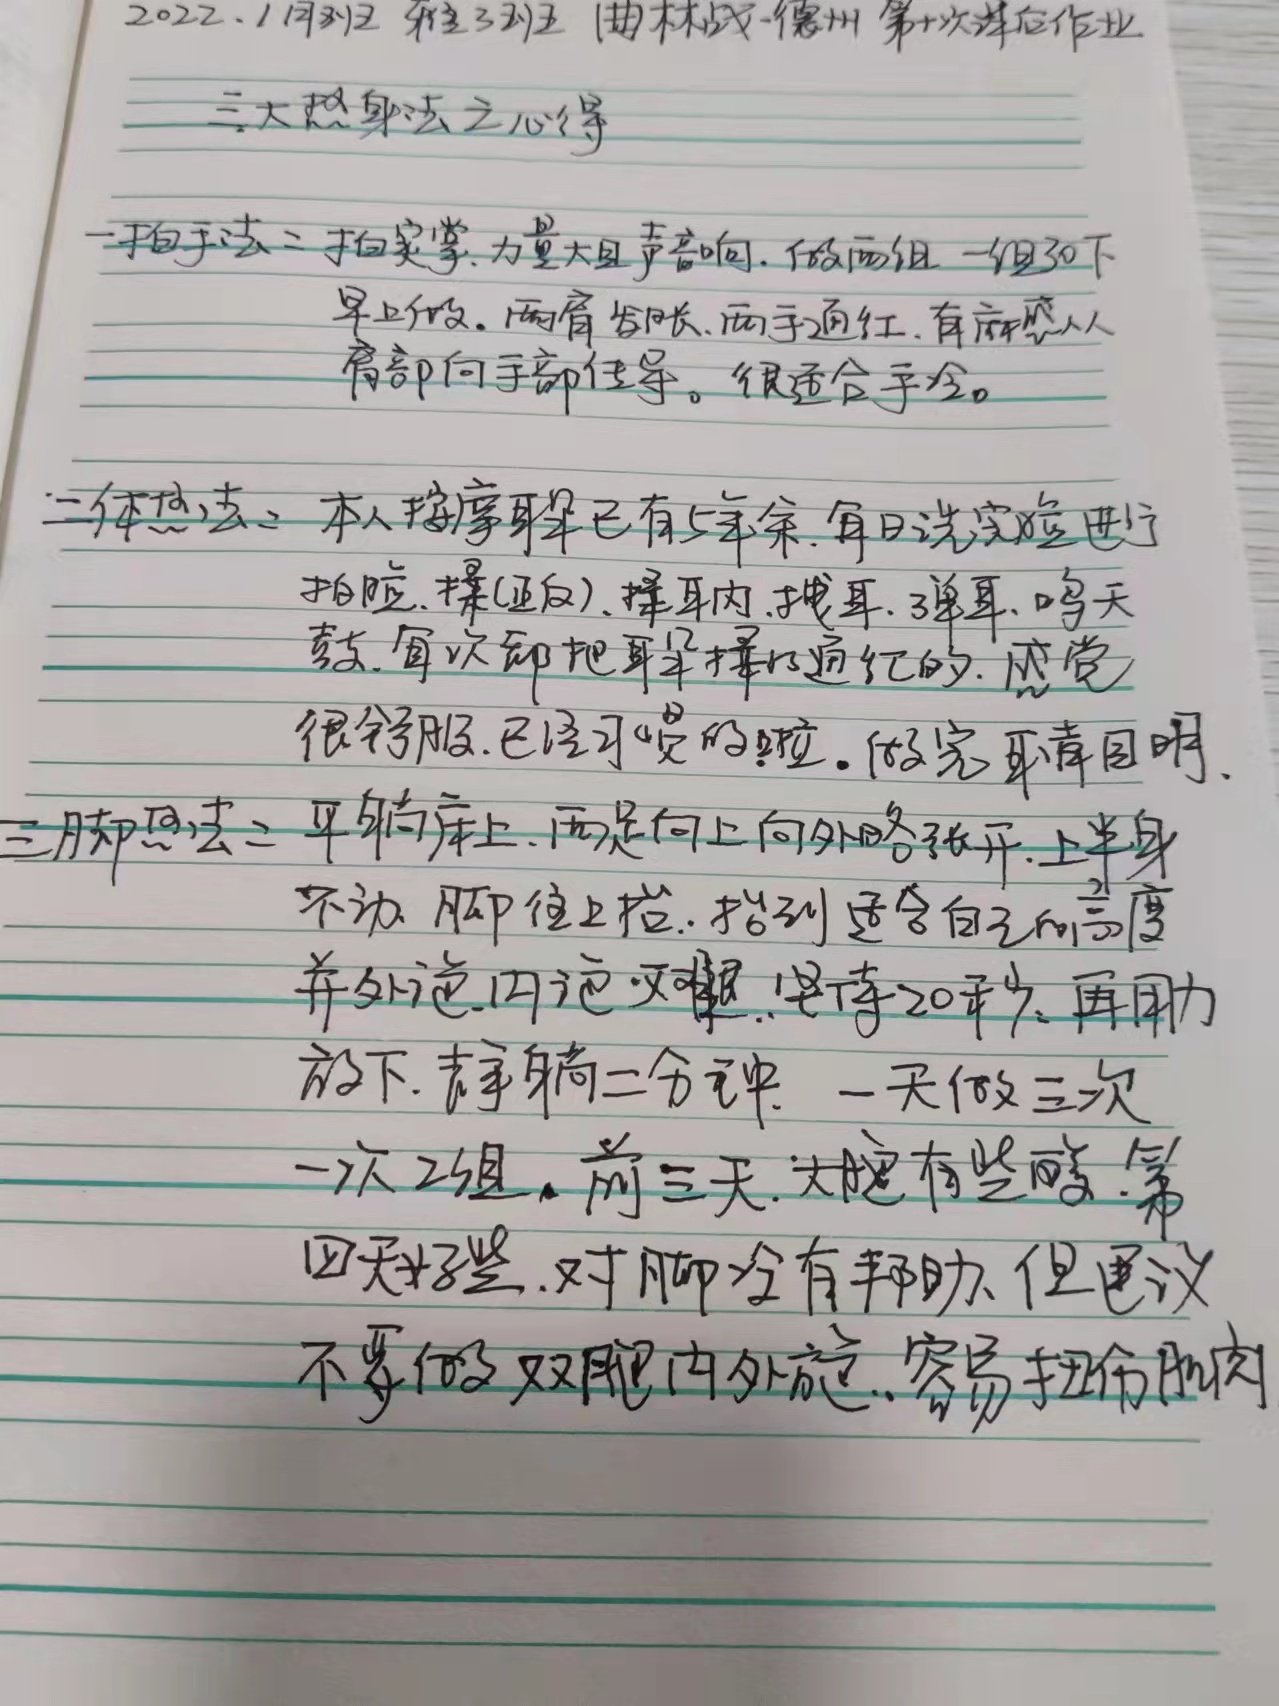 2022.1月班 雅3班 曲林战-德州 第十次课后作业
三大热身法之心得
一拍手法: 拍实掌、力量大且声音响. 做两组 一组30下
早上做。两膏发胀、两手通红. 有麻感从
膏部向手部传导。很适合手冷。
二体热法: 本人按摩耳朵已有5年余. 每日洗完脸进行
拍脸、揉(正反)、揉耳内、拽耳、弹耳、鸣天
鼓. 每次都把耳朵揉的通红的. 感觉
很舒服. 已经习惯的啦。做完耳清目明.
三脚热法: 平躺床上. 两足向上向外略张开. 上半身
不动. 脚往上抬. 抬到适合自己的高度
并外旋、内旋双腿. 坚持20来秒. 再用力
放下. 静躺二分钟. 一天做三次
一次2组。前三天. 大腿有些酸. 第
四天好些. 对脚冷有帮助. 但建议
不要做双腿内外旋. 容易扭伤肌肉